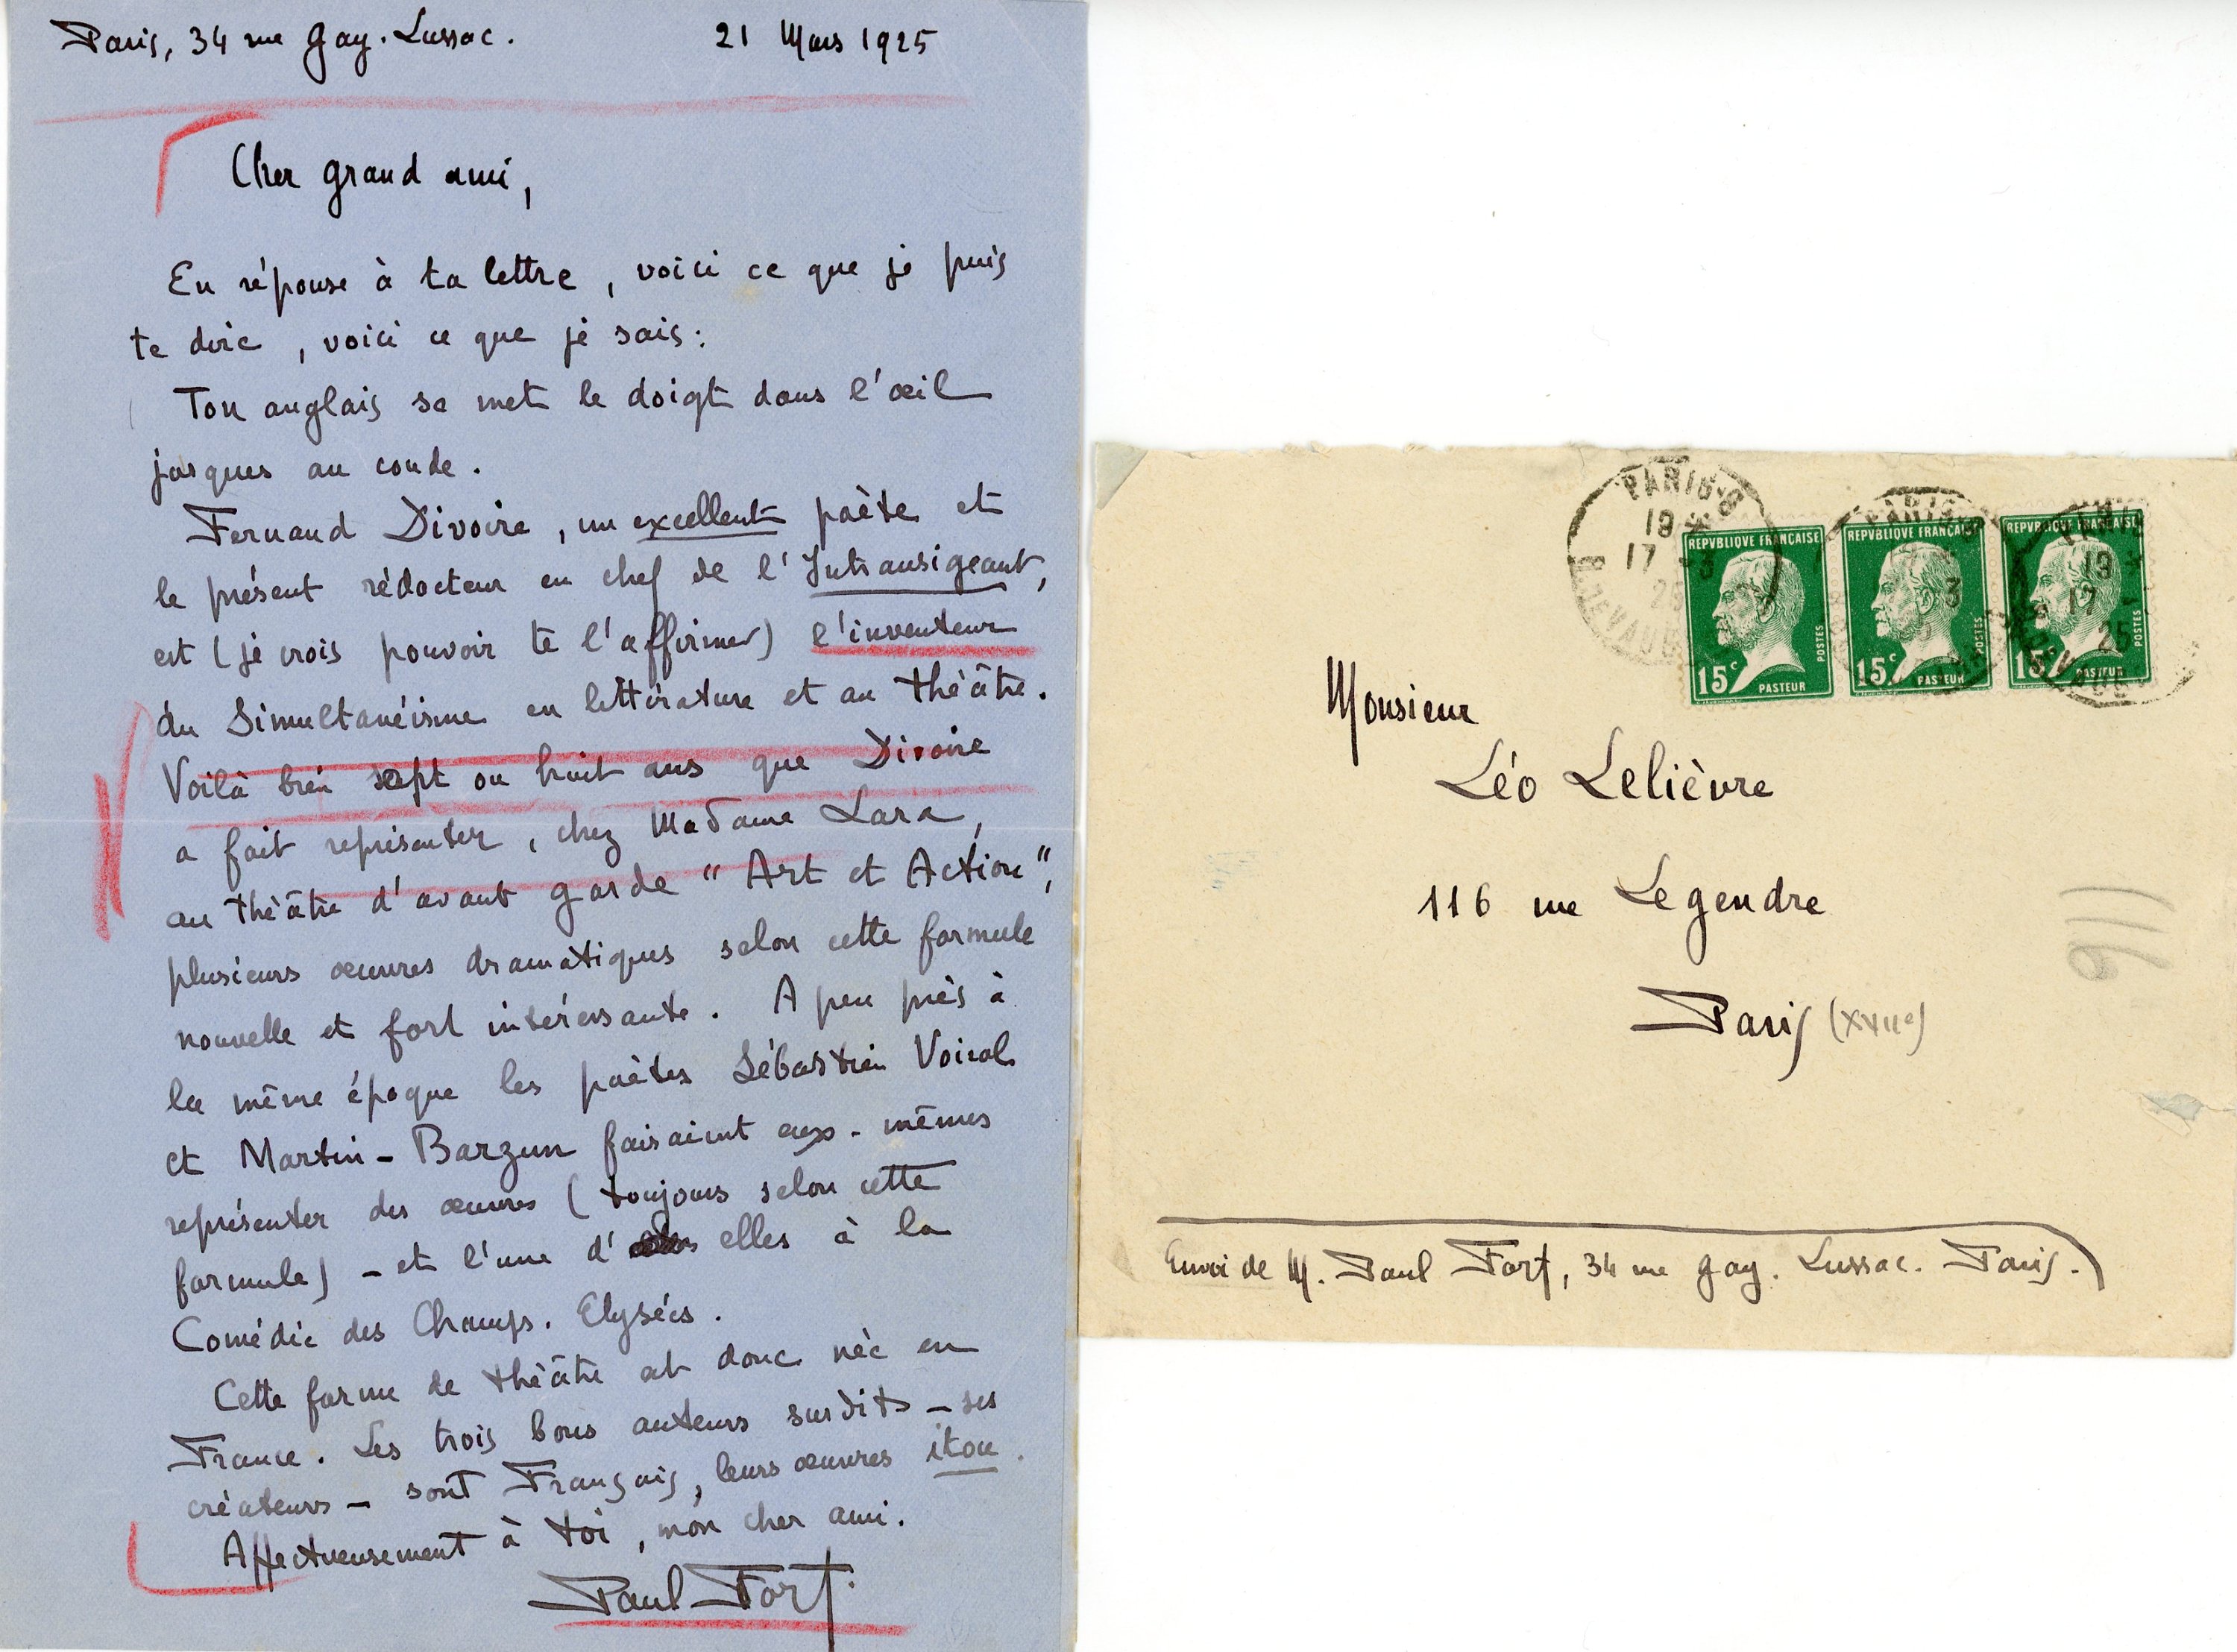 Paris, 34 rue Gay-Lussac. 21 Mars 1925
Cher grand ami,
En réponse à ta lettre, voici ce que je puis
te dire, voici ce que je sais:
Ton anglais se met le doigt dans l'œil
jusques au coude.
Fernand Divoire, un excellent poète et
le présent rédacteur en chef de l'Intransigeant,
est (je crois pouvoir te l'affirmer) l'inventeur
du Simultanéisme en littérature et au théâtre.
Voilà bien sept ou huit ans que Divoire
a fait représenter, chez Madame Lara,
au théâtre d'avant garde "Art et Action",
plusieurs œuvres dramatiques selon cette formule
nouvelle et fort intéressante. A peu près à
la même époque les poètes Sébastien Voirol
et Martin-Barzun faisaient eux-mêmes
représenter des œuvres (toujours selon cette
formule) - et l'une d' elles à la
Comédie des Champs-Elysées.
Cette forme de théâtre est donc née en
France. Les trois bons auteurs susdits - ses
créateurs - sont Français, leurs œuvres itou.
Affectueusement à toi, mon cher ami.
Paul Fort.
PARIS-8
19
17 -3
25
REPVBLIQVE FRANÇAISE
15c
POSTES
PASTEUR
REPVBLIQVE FRANÇAISE
15c
POSTES
PASTEUR
REPVBLIQVE FRANÇAISE
15c
POSTES
PASTEUR
19
17
25
Monsieur
Léo Lelièvre
116 rue Legendre
Paris (XVIIe)
116
Envoi de M. Paul Fort, 34 rue Gay-Lussac. Paris.